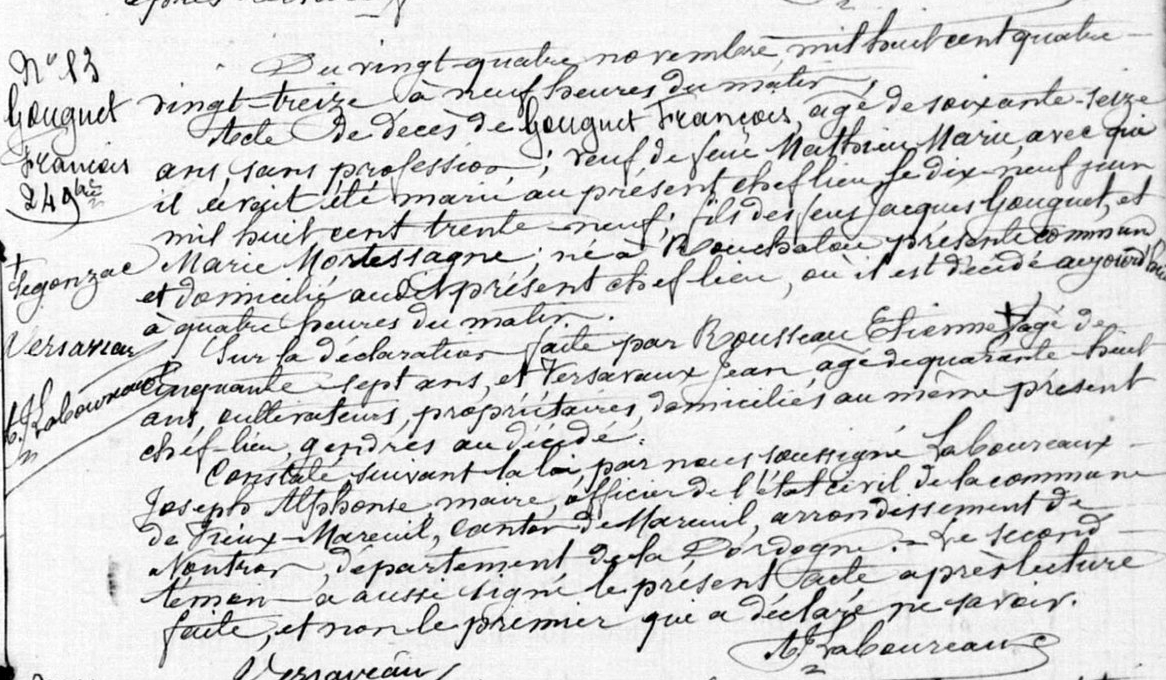 N° 13
Gouguet
François
249
Legonzac
Versaveau
A. Laboureau
Du vingt-quatre novembre mil huit cent quatre-
vingt-treize à neuf heures du matin,
Acte de décès de Gouguet François, agé de soixante-seize
ans, sans profession, veuf de feue Mathieu Marie, avec qui
il avait été marié au présent chef lieu, le dix-neuf juin
mil huit cent trente-neuf; fils des feus Jacques Gouguet, et
Marie Mortessagne; né à présente commun
et domicilié audit présent chef lieu, où il est décédé aujourd'hui
à quatre heures du matin.
Sur la déclaration faite par Rousseau Etienne agé de
cinquante sept ans, et Versavaux Jean agé de quarante huit
ans, cultivateurs, propriétaires, domiciliés au même présent
chef-lieu, gendres au décédé.
Constaté suivant la loi, par nous soussigné Laboureaux
Joseph Alphonse maire, officier de l'état civil de la commune
de Vieux-Mareuil, canton de Mareuil, arrondissement de
Nontron, département de la Dordogne. - Le second
témoin a aussi signé le présent acte après lecture
faite, et non le premier qui a déclaré ne savoir.
A. Laboureau
Versaveau